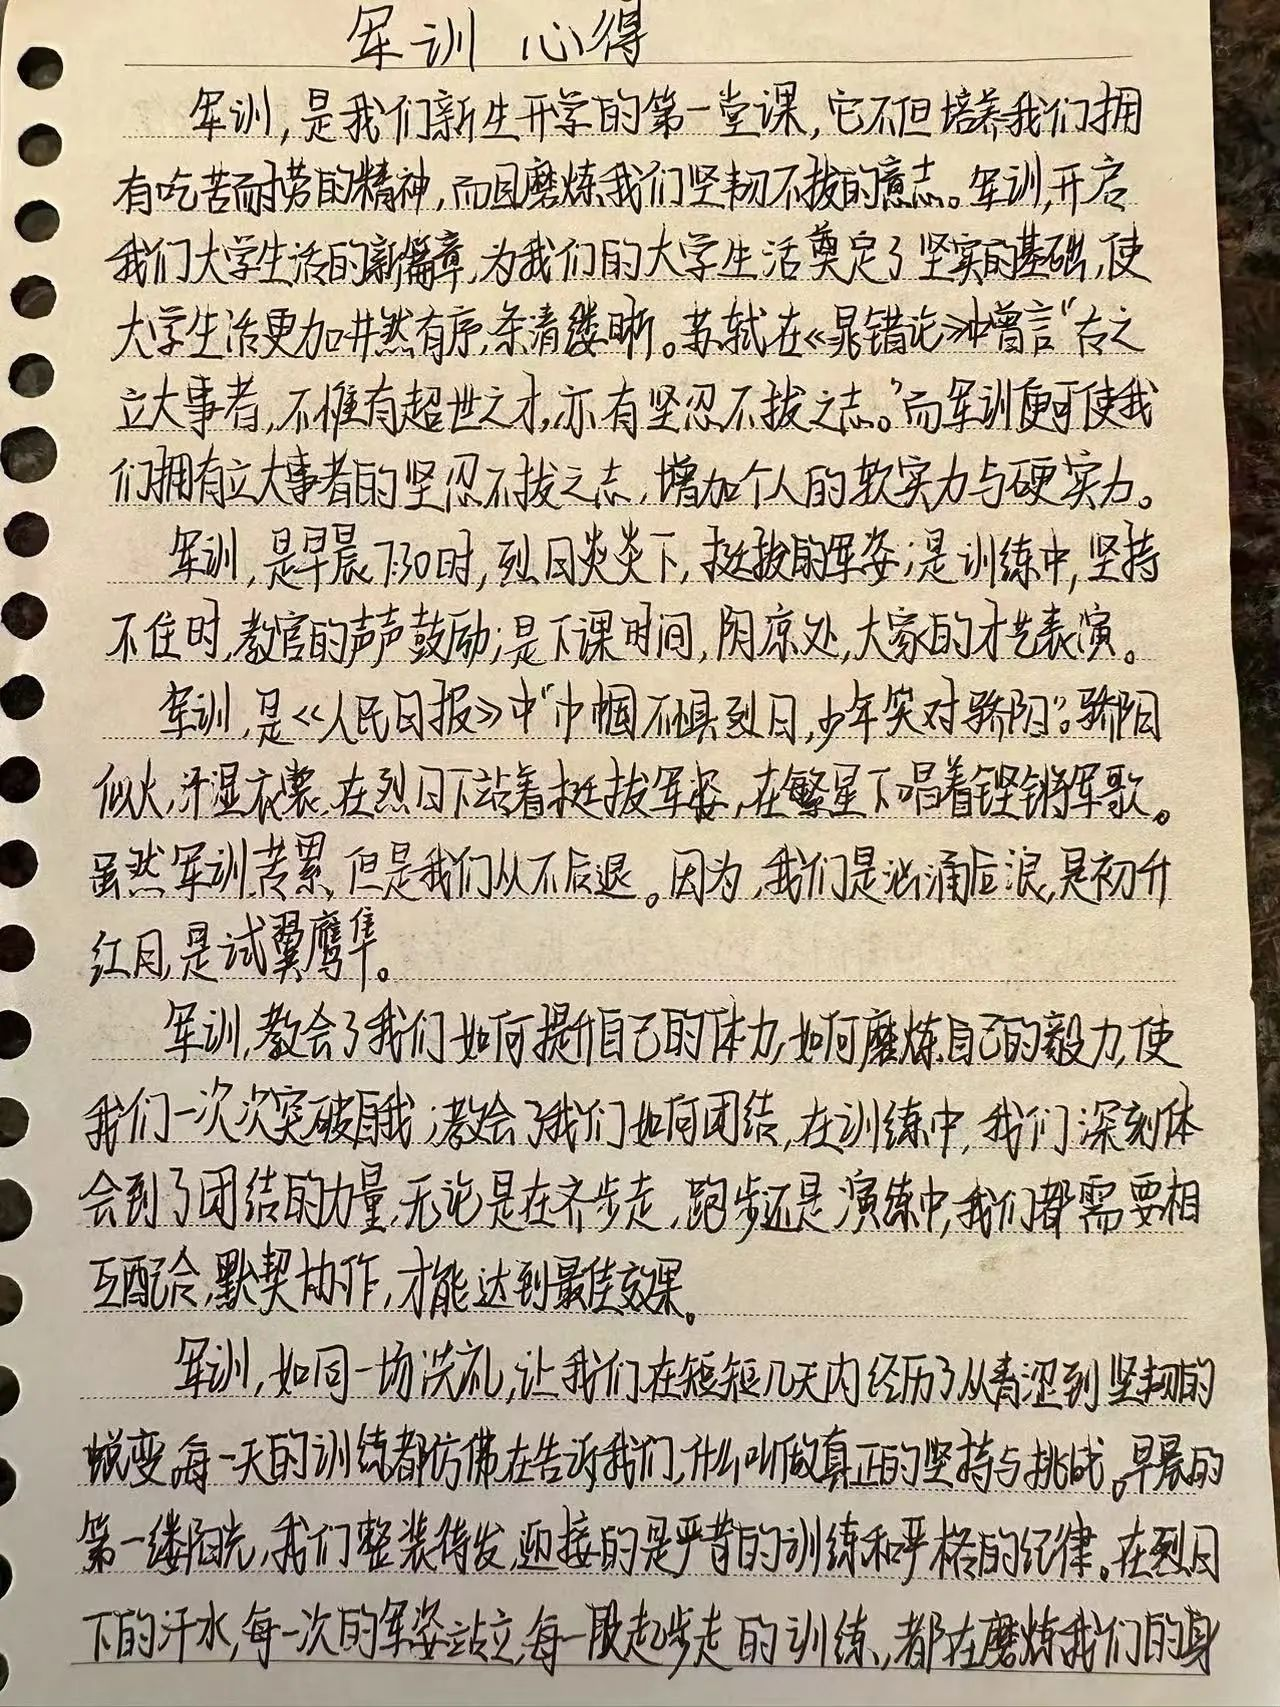 军训 心得
军训,是我们新生开学的第一堂课,它不但培养我们拥
有吃苦耐劳的精神,而且磨炼我们坚韧不拔的意志。军训,开启
我们大学生活的新篇章,为我们的大学生活奠定了坚实的基础,使
大学生活更加井然有序,条清缕晰。苏轼在《晁错论》中曾言“古之
立大事者,不惟有超世之才,亦有坚忍不拔之志。”而军训便可使我
们拥有立大事者的坚忍不拔之志,增加个人的软实力与硬实力。
军训,是早晨7:30时,烈日炎炎下,挺拔的军姿;是训练中,坚持
不住时,教官的声声鼓励;是下课时间,阴凉处,大家的才艺表演。
军训,是《人民日报》中“巾帼不惧烈日,少年笑对骄阳”。骄阳
似火,汗湿衣襟,在烈日下站着挺拔军姿,在繁星下唱着铿锵军歌。
虽然军训苦累,但是我们从不后退。因为,我们是汹涌后浪,是初升
红日,是试翼鹰隼。
军训,教会了我们如何提升自己的体力,如何磨炼自己的毅力,使
我们一次次突破自我;教会了我们如何团结,在训练中,我们深刻体
会到了团结的力量,无论是在齐步走,跑步还是演练中,我们都需要相
互配合,默契协作,才能达到最佳效果。
军训,如同一场洗礼,让我们在短短几天内经历了从青涩到坚韧的
蜕变,每一天的训练都仿佛在告诉我们,什么叫做真正的坚持与挑战。早晨的
第一缕阳光,我们整装待发,迎接的是严苛的训练和严格的纪律。在烈日
下的汗水,每一次的军姿站立,每一段起步走的训练,都在磨炼我们的身